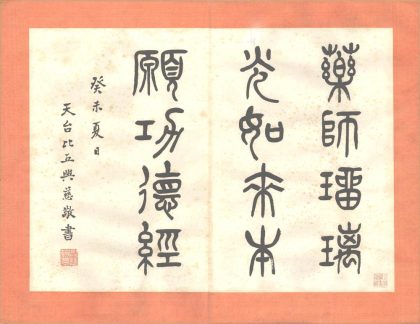 藥師璢璃
光如来本
願功德經
癸未夏日
天台比丘興慈敬書